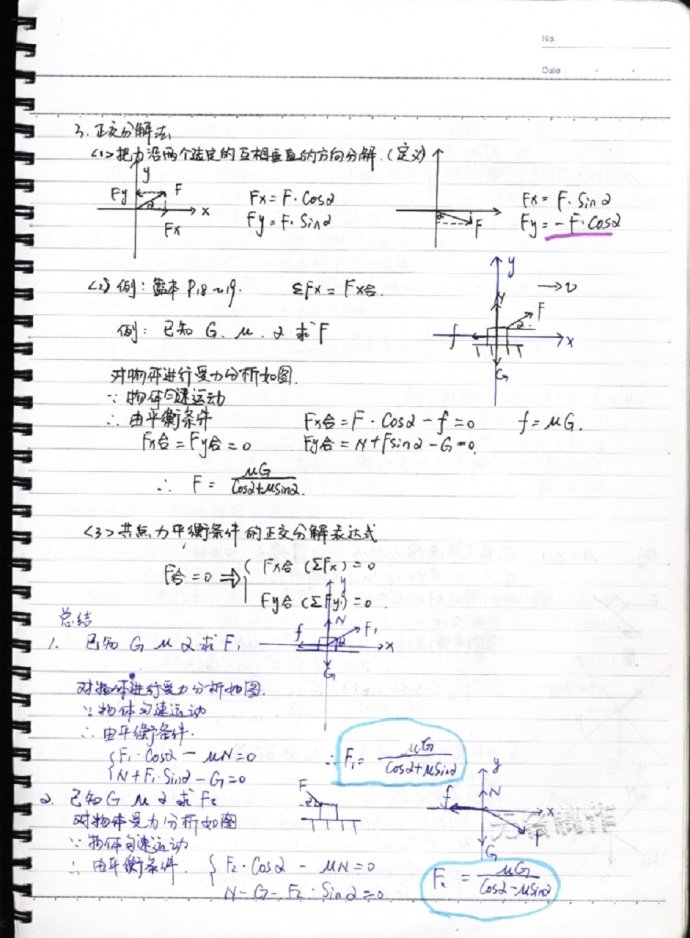 No.
Date
3. 正交分解法
<1>把力沿两个选定的互相垂直的方向分解.(定义)
y
Fy F
α x
Fx
Fx = F·Cosα
Fy = F·Sinα
α F
Fx = F·Sinα
Fy = -F·Cosα
<2>例: 课本 P18~19. ΣFx = Fx合.
y
→v
N F
α
f x
G
例: 已知 G、μ、α 求 F
对物体进行受力分析如图.
∵ 物体匀速运动
∴ 由平衡条件 Fx合 = F·Cosα - f = 0 f = μG.
Fx合 = Fy合 = 0 Fy合 = N + Fsinα - G = 0.
∴ F = μG / Cosα+μSinα.
<3>共点力平衡条件的正交分解表达式
F合 = 0 ⇒ { Fx合 (ΣFx) = 0
Fy合 (ΣFy) = 0
总结
1. 已知 G μ α 求 F₁
y
N F₁
f α x
G
对物体进行受力分析如图.
∵ 物体匀速运动
∴ 由平衡条件.
{ F₁·Cosα - μN = 0
N + F₁·Sinα - G = 0
∴ F₁ = μG / Cosα+μSinα
2. 已知 G μ α 求 F₂
F
y
f N x
F
G
对物体受力分析如图
∵ 物体匀速运动
∴ 由平衡条件. { F₂·Cosα - μN = 0
N - G - F₂·Sinα = 0.
F₂ = μG / Cosα-μSinα